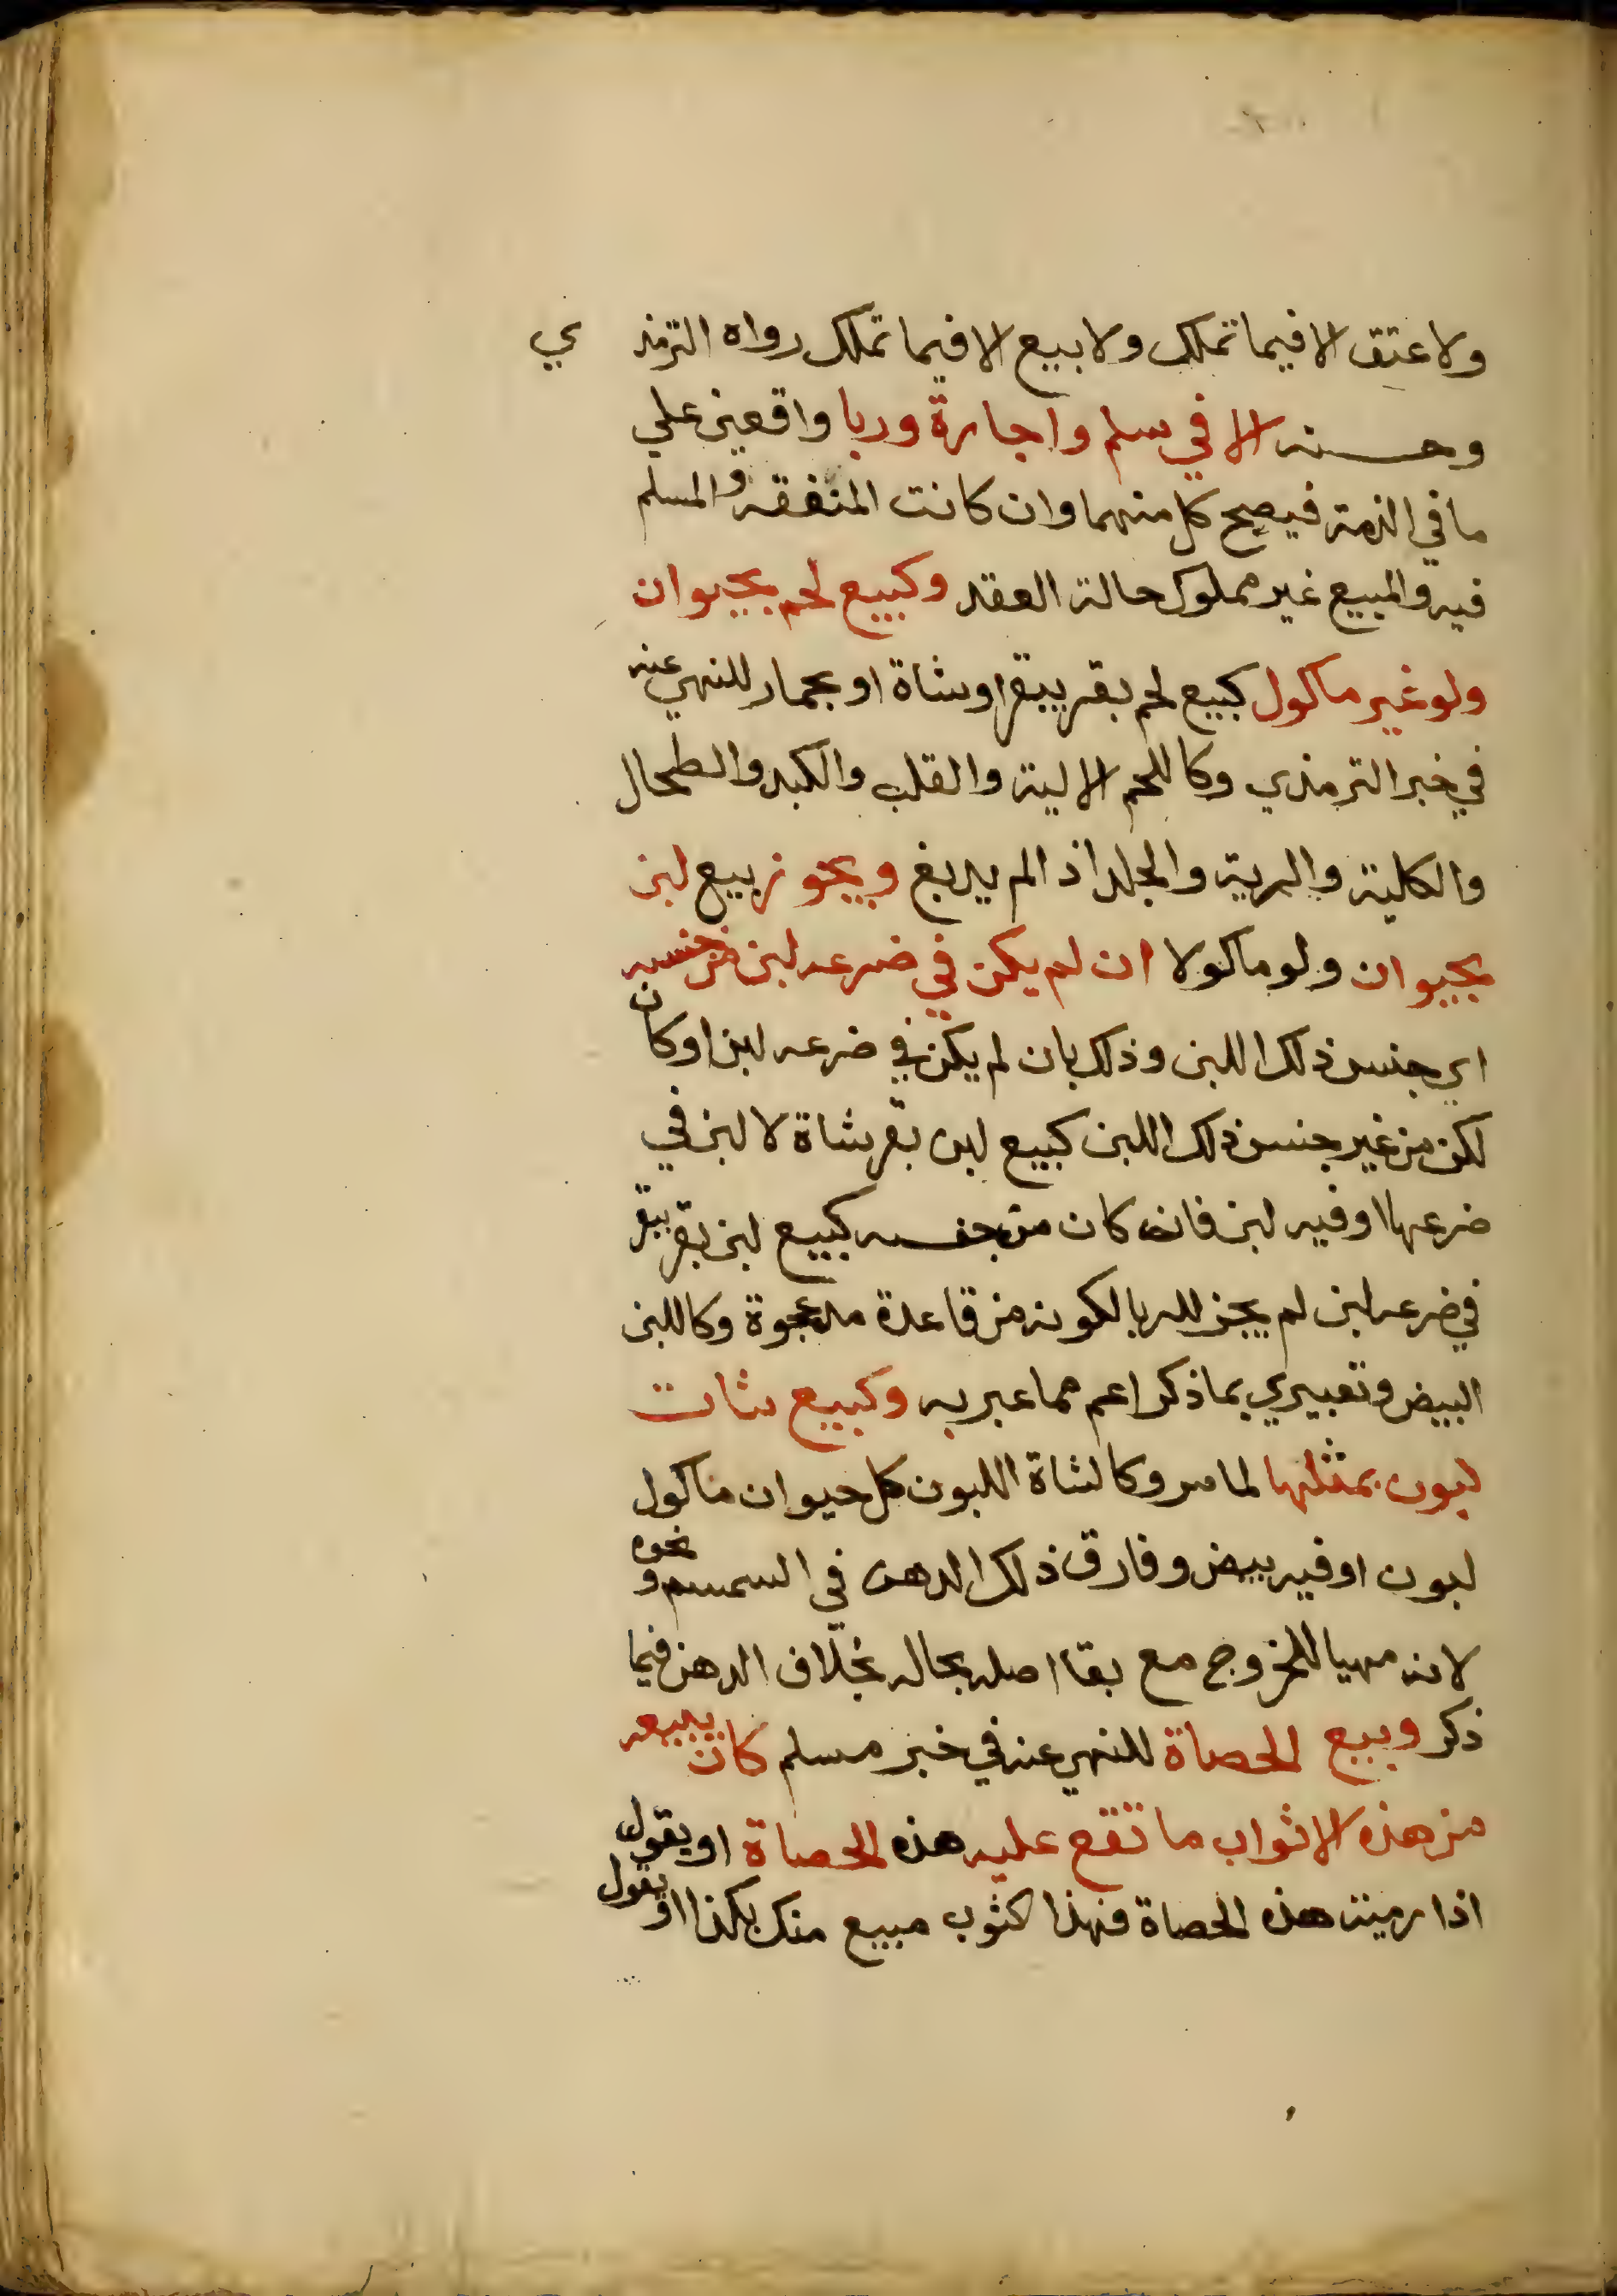 ولا عتق الا فيما تملك ولا بيع الا فيما تملك رواه الترمذ ي
وحسنه الا في سلم واجارة وربا واقعين علي
ما في الذمة فيصح كل منهما وان كانت المنفعة والمسلم
فيه والمبيع غير مملوك حالة العقد وكبيع لحم بحيوان
ولو غير ماكول كبيع لحم بقر ببقر او شاة او بحمار للنهي عنه
في خبر الترمذي وكاللحم الالية والقلب والكبد والطحال
والكلية والرية والجلد اذا لم يدبغ ويجوز بيع لبن
بحيوان ولو ماكولا ان لم يكن في ضرعه لبن من جنسه
اي جنس ذلك اللبن وذلك بان لم يكن في ضرعه لبن او كان
لكن من غير جنس ذلك اللبن كبيع لبن بقر بشاة لا لبن في
ضرعها او فيه لبن فان كان من جنسه كبيع لبن بقر ببقر
في ضرعه لبن لم يجز للربا لكونه من قاعدة مد عجوة وكاللبن
البيض وتعبيري بما ذكر اعم مما عبر به وكبيع شات
لبون بمثلها لما مر وكالشاة اللبون كل حيوان ماكول
لبون او فيه بيض وفارق ذلك الدهن في السمسم ونحوه
لانه مهيا للخروج مع بقا اصله بحاله بخلاف الدهن فيما
ذكر وبيع الحصاة للنهي عنه في خبر مسلم كان يبيعه
من هذه الاثواب ما تقع عليه هذه الحصاة او يقول
اذا رميت هذه الحصاة فهذا الثوب مبيع منك بكذا او يقول